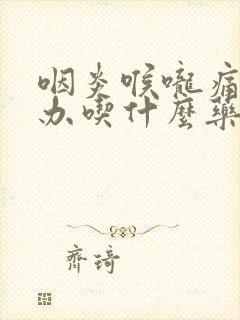 咽炎喉嚨痛
办喫什麼藥
齊琦